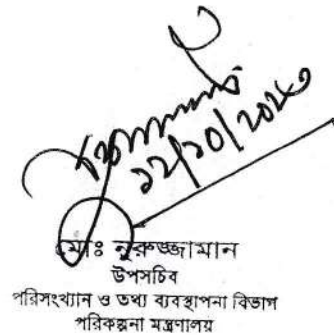 ১২/১০/২০২৩
মোঃ নুরুজ্জামান
উপসচিব
পরিসংখ্যান ও তথ্য ব্যবস্থাপনা বিভাগ
পরিকল্পনা মন্ত্রণালয়